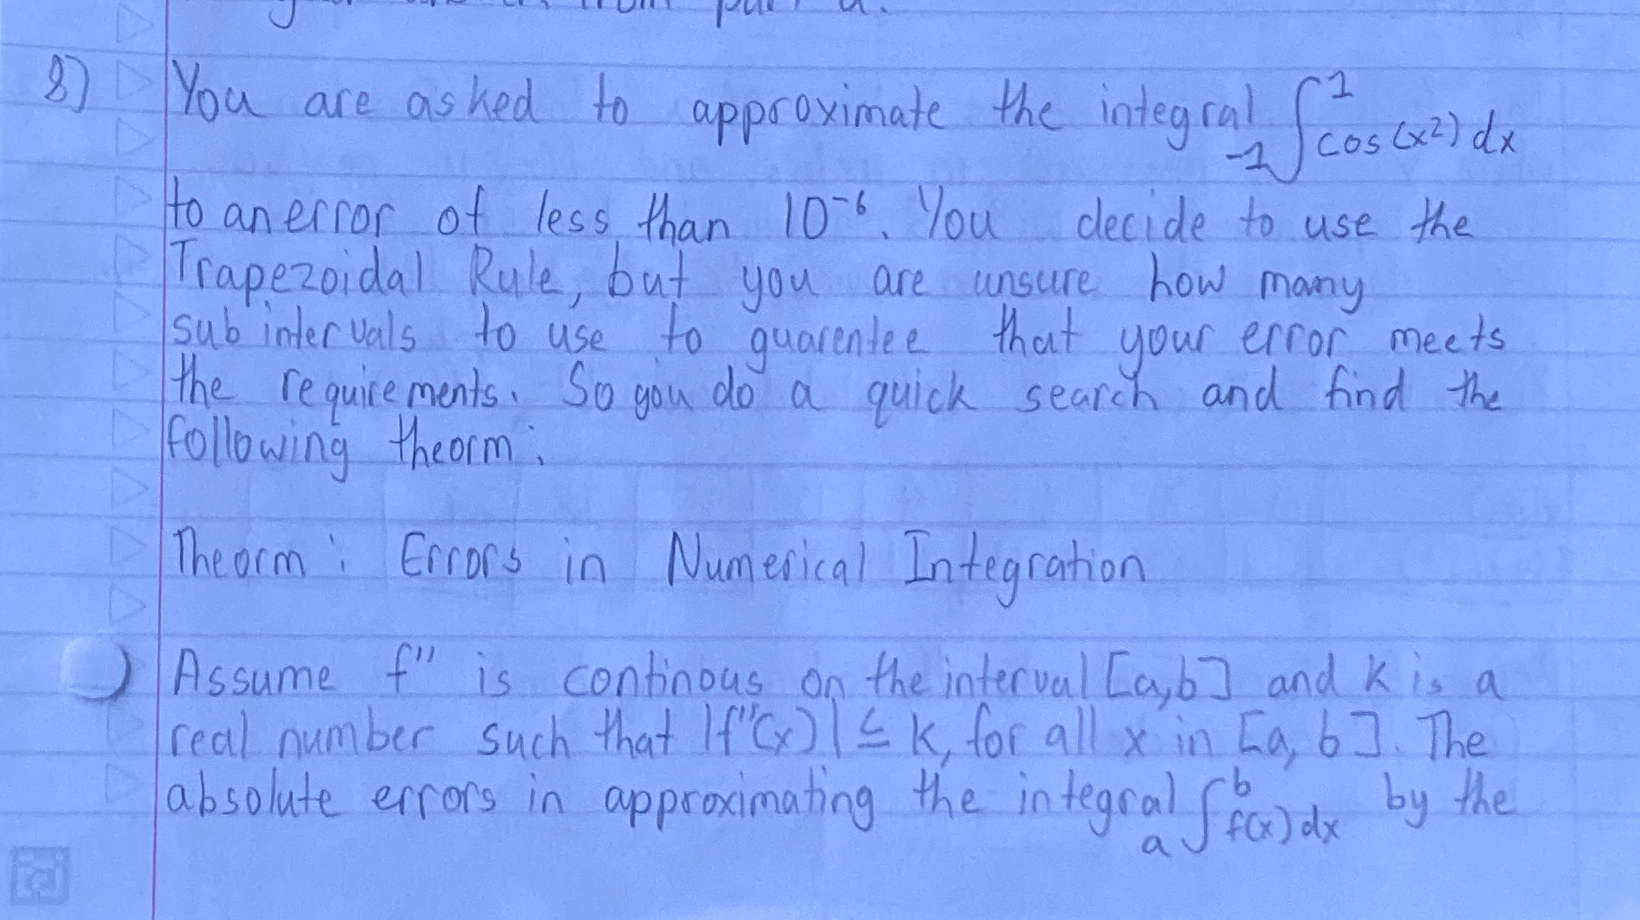 from part a.
8) You are asked to approximate the integral ∫₋₁¹ cos(x²) dx
to an error of less than 10⁻⁶. You decide to use the
Trapezoidal Rule, but you are unsure how many
subintervals to use to guarentee that your error meets
the requirements. So you do a quick search and find the
following theorm:
Theorm: Errors in Numerical Integration
Assume f'' is continous on the interval [a,b] and k is a
real number such that |f''(x)| ≤ k, for all x in [a, b]. The
absolute errors in approximating the integral ∫ₐᵇ f(x) dx by the